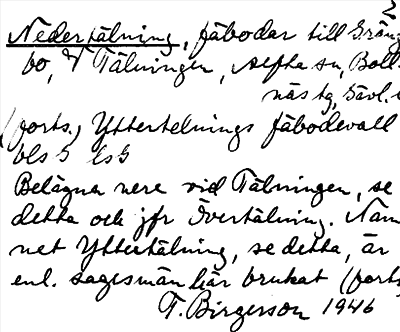 2
Nedertälning, fäbodar till Gräng
bo, V Tälningen, Alfta sn, Boll-
näs tg, Gävl. l
(forts.) Yttertelnings fäbodevall
bls 5 Ls 5
Belägna nere vid Tälningen, se
detta och jfr Övertälning. Nam
net Yttertälning, se detta, är
enl. sagesmän här brukat (forts
T. Birgerson 1946